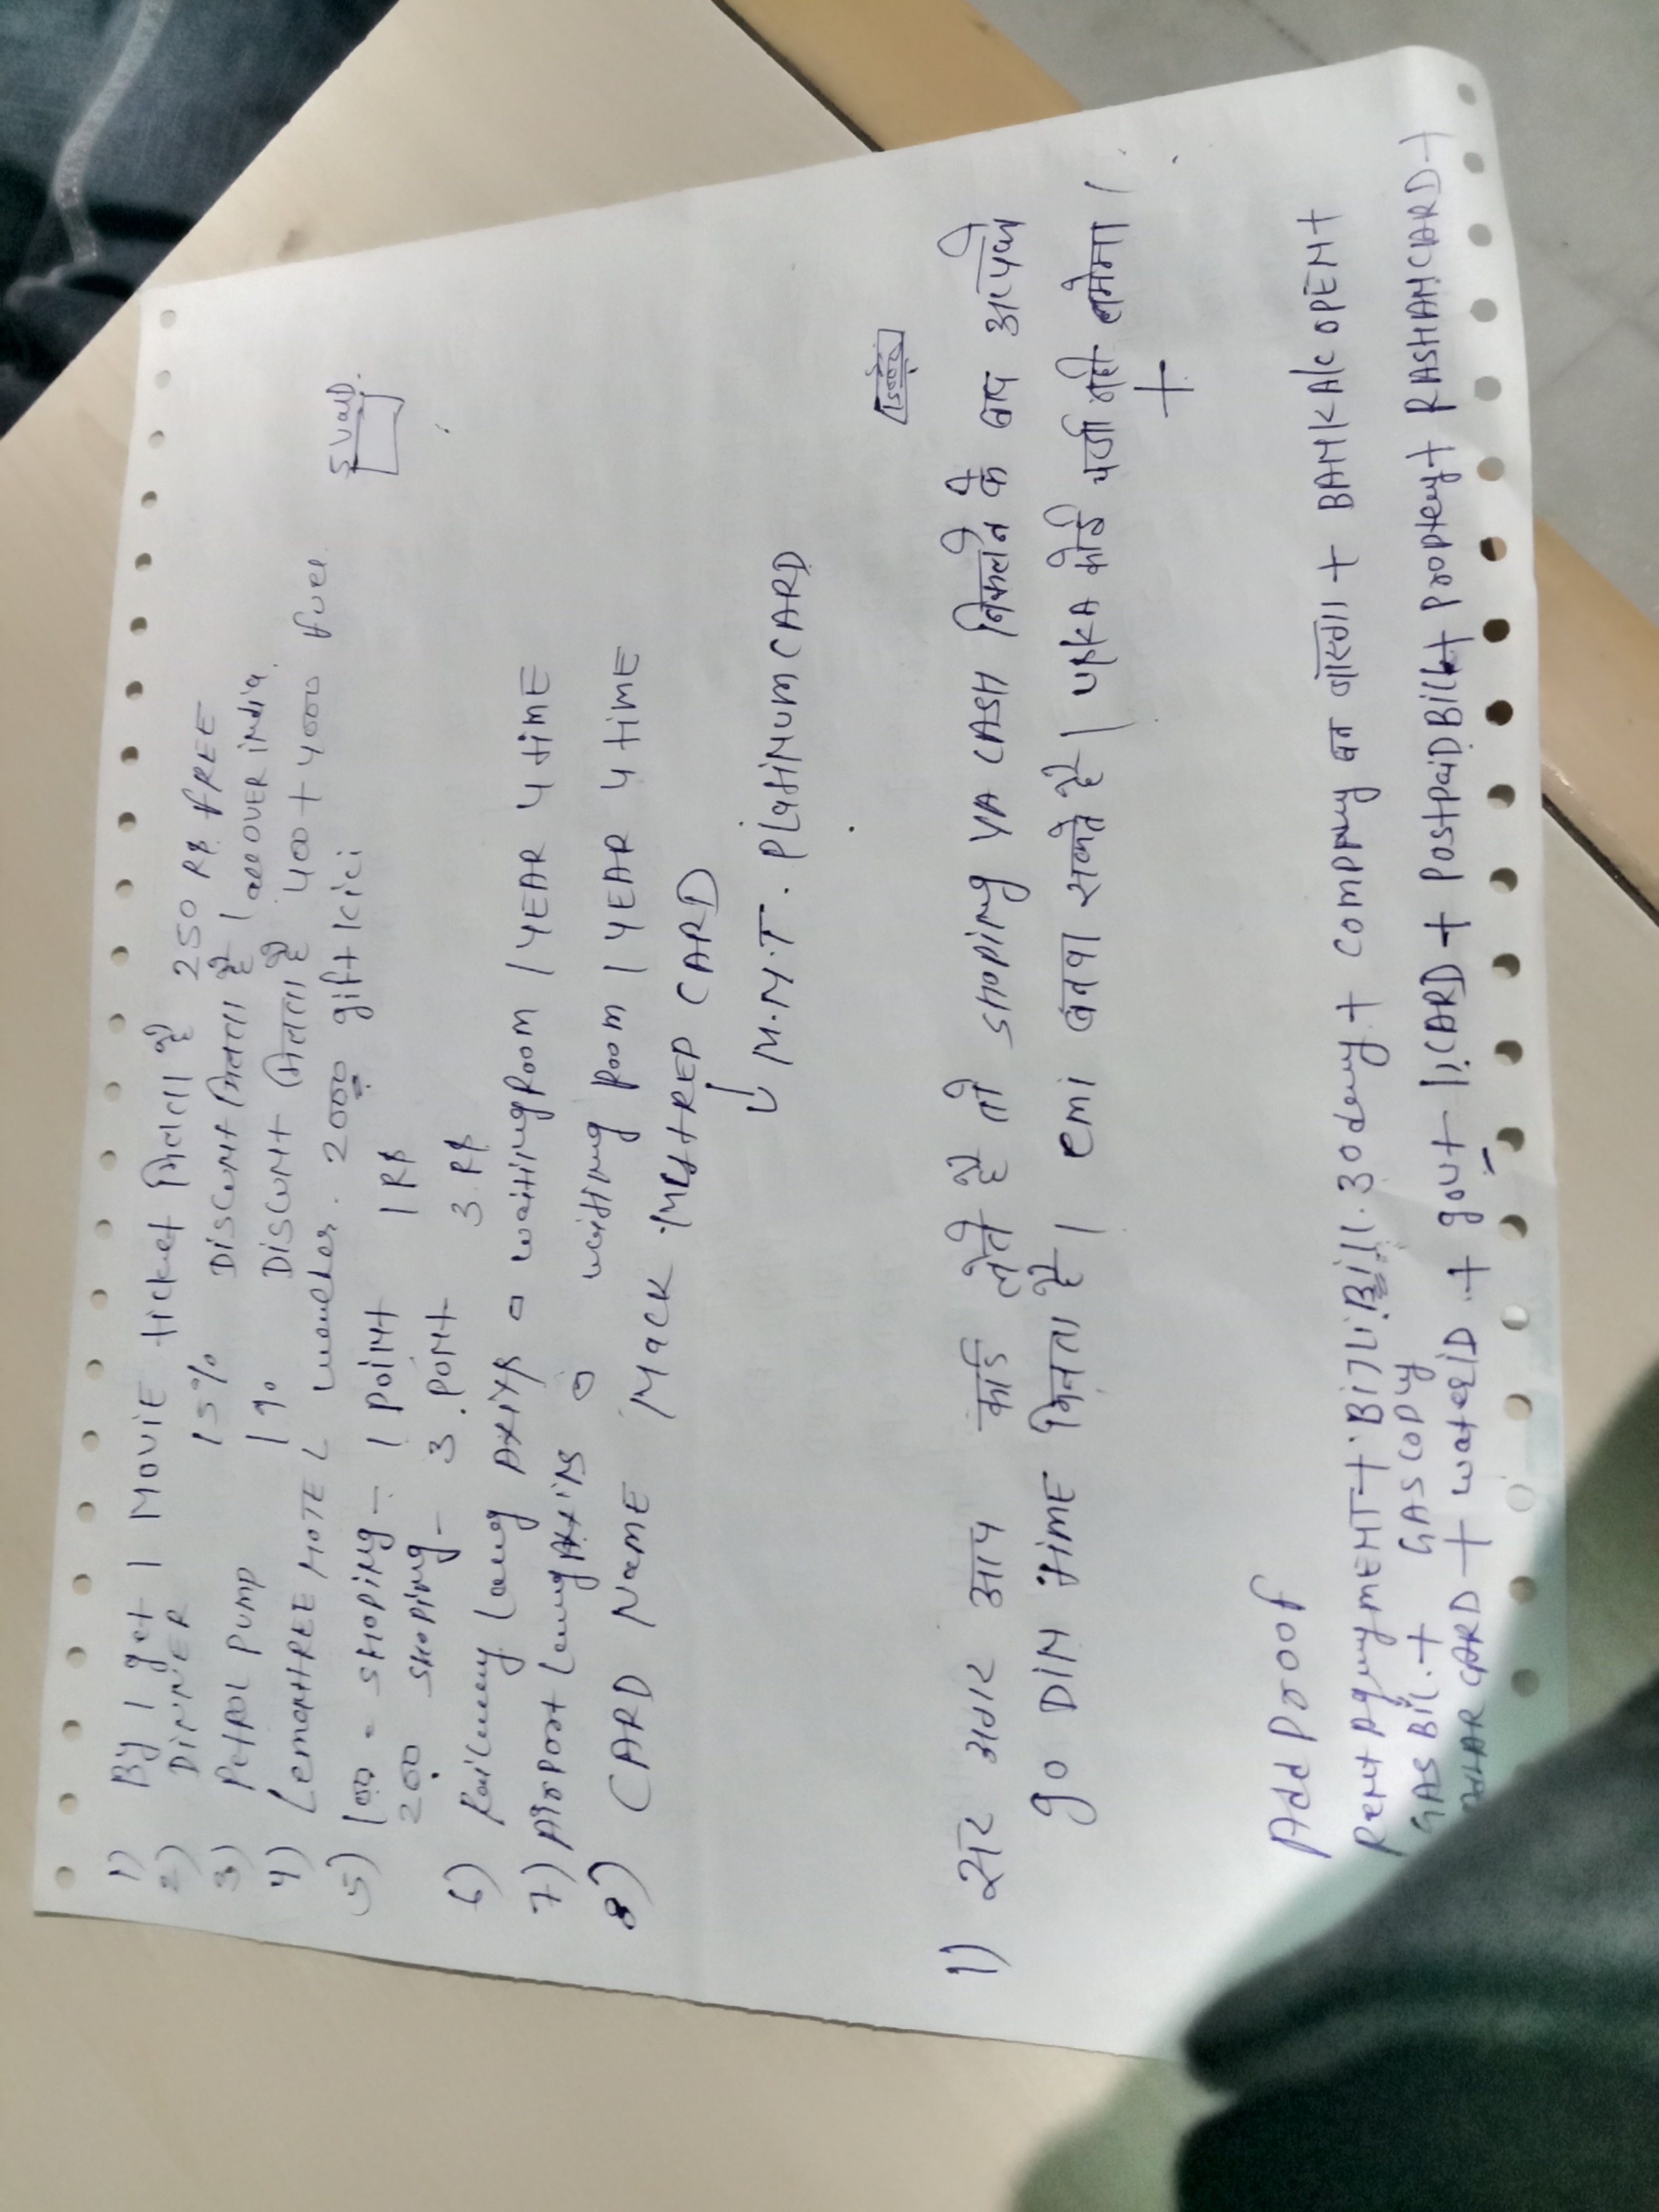 1) By 1 get 1 MOViE ticket मिलता है 250 RS FREE
2) DiNNER 15% DISCONT मिलता है | all OVER india.
3) PetROL PUMP 1% DISCONT मिलता है 400 + 4000 fuel
4) LemontREE HOTEL voucher. 2000 gift icici
5) 100 = SHOPiNg - 1 POiNt 1 RS
200 SHOPiNg - 3. POiNt 3 RS
6) Railway Loung AXiYS waitingRoom 1 YEAR 4 tiME
7) AiRPORt Loung AXiS waiting Room 1 YEAR 4 tiME
8) CARD NaME Mack MEStRED CARD
M.M.T. PLatiNUM CARD
1) सर अगर आप कार्ड लेते है तो SHOPiNg YA CASH निकलने के बाद आपको
90 DiN tiME मिलता है | emi बनवा सकते है | USKA कोई चार्ज नही लगेगा |
+
Add Proof
Rent AgrymENT + BiJLi Bill. 30 day + Company का + BANK A/C OPEN +
GAS Bil. + GAS COPY
CARD + WateR iD + gout i CARD + POStPaiD Bill + Proptey + RASHAN CARD +